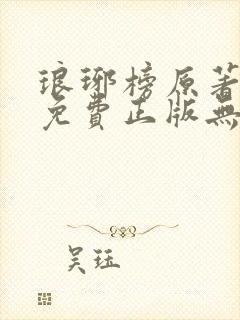 琅琊榜原著
免費正版無
吴珏